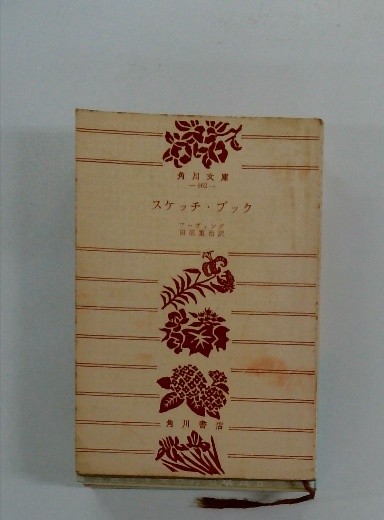 角川文庫
—462—
スケッチ・ブック
アーヴィング
田部重治訳
角川書店